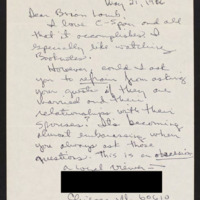 May 21, 19
Dear Brian Lamb,
I love C-Span and all
that it accomplishes. I
especially like watching
Booknotes.
However, could I ask
you to refrain from asking
your guests if they are
married and their
relationships with their
spouses? It's becoming
almost embarrassing when
you always ask those
questions. This is an obsession
A loyal viewer
Chicago, Ill. 60610